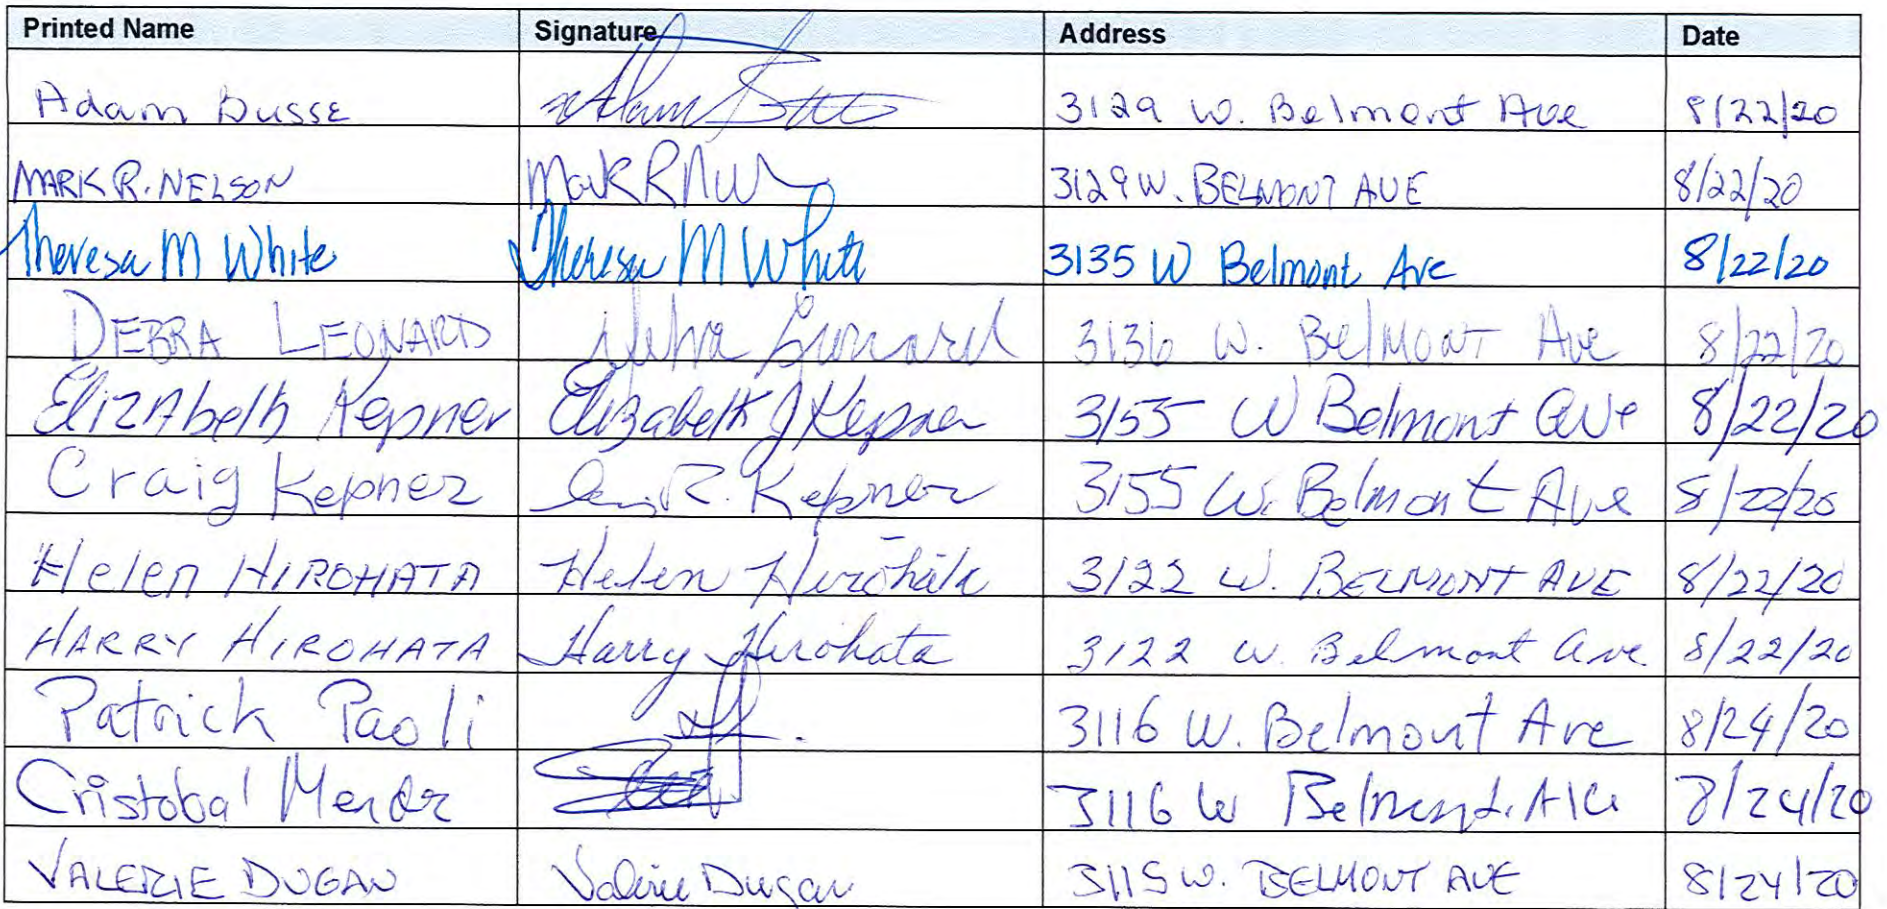 Printed Name Signature Address Date
Adam Busse Adam 3129 W. Belmont Ave 8/22/20
MARK R. NELSON Mark R 3129 W. BELMONT AVE 8/22/20
Theresa M White Theresa M White 3135 W Belmont Ave 8/22/20
DEBRA LEONARD Debra Leonard 3136 W. BElMONT Ave 8/22/20
ElizAbeth Kepner Elizabeth J Kepner 3155 W Belmont Ave 8/22/20
Craig Kepner R. Kepner 3155 W. Belmont Ave 8/22/20
Helen HIROHATA Helen Hirohata 3122 W. BELMONT AVE 8/22/20
HARRY HIROHATA Harry Hirohata 3122 W. Belmont Ave 8/22/20
Patrick Paoli 3116 W. Belmont Ave 8/24/20
Cristobal 3116 W Belmont. Ave 8/24/20
VALERIE DUGAN Valerie Dugan 3115 W. BELMONT AVE 8/24/20